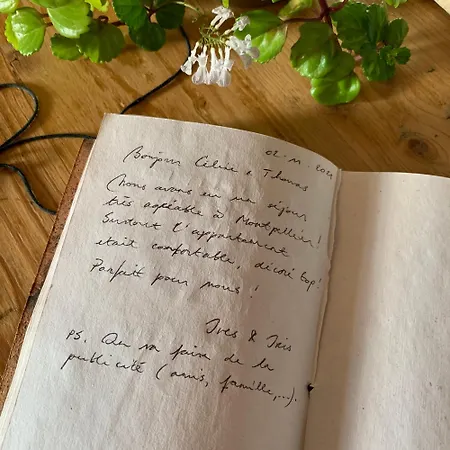 02.11.2021
Bonjour Célia & Thomas
Nous avons eu un séjour
très agréable à Montpellier!
Surtout l'appartement
était confortable, décoré top!
Parfait pour nous!
Yves & Iris
ps. On va faire de la
publicité (amis, famille,...).